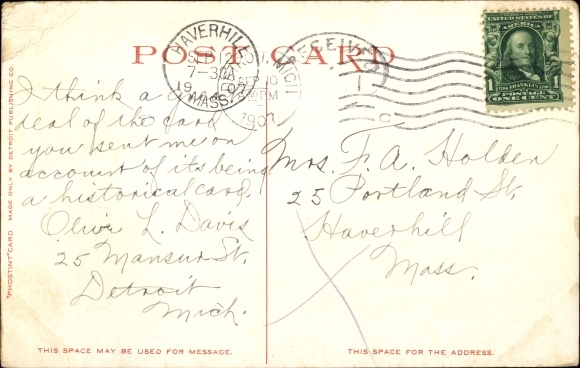 POST CARD
HAVERHILL
SEP 12
7-30A
1907
MASS.
RECEIVED
SEP 10
PM
1907
UNITED STATES OF AMERICA
1 1
FRANKLIN
POSTAGE
ONE CENT
I think a
deal of the card
you sent me on
account of its being
a historical card.
Olive L. Davis
25 Mansur St.
Detroit
Mich.
Mrs. F. A. Holden
25 Portland St.
Haverhill
Mass.
"PHOSTINT" CARD MADE ONLY BY DETROIT PUBLISHING CO.
THIS SPACE MAY BE USED FOR MESSAGE.
THIS SPACE FOR THE ADDRESS.